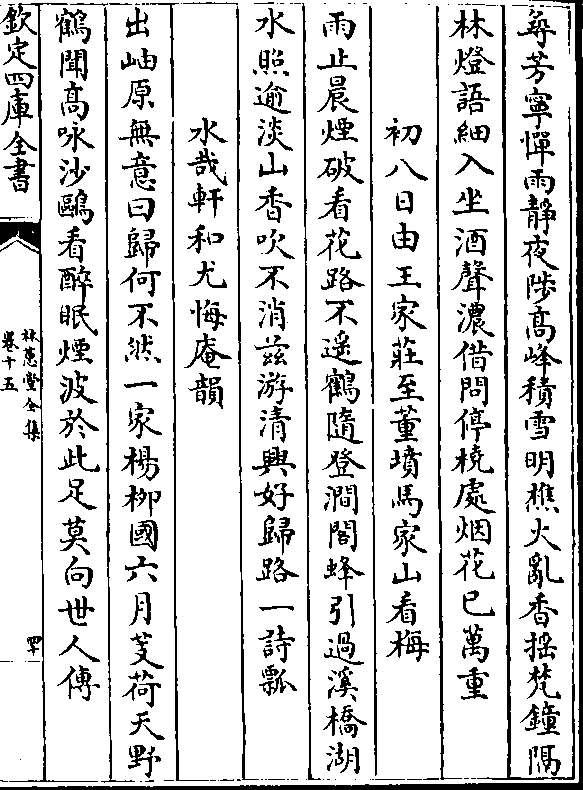 尋芳寧憚雨靜夜陟髙峰積雪明樵火亂香揺梵鐘隔
林燈語細入坐酒聲濃借問停橈處烟花已萬重
初八日由王家莊至董墳馬家山看梅
雨止晨煙破看花路不遥鶴隨登澗閣蜂引過溪橋湖
水照逾淡山香吹不消兹游清興好歸路一詩瓢
水哉軒和尤悔庵韻
出岫原無意曰歸何不然一家楊柳國六月芰荷天野
鶴聞髙咏沙鷗看醉眠煙波於此足莫向世人傳
欽定四庫全書
林蕙堂全集
卷十五